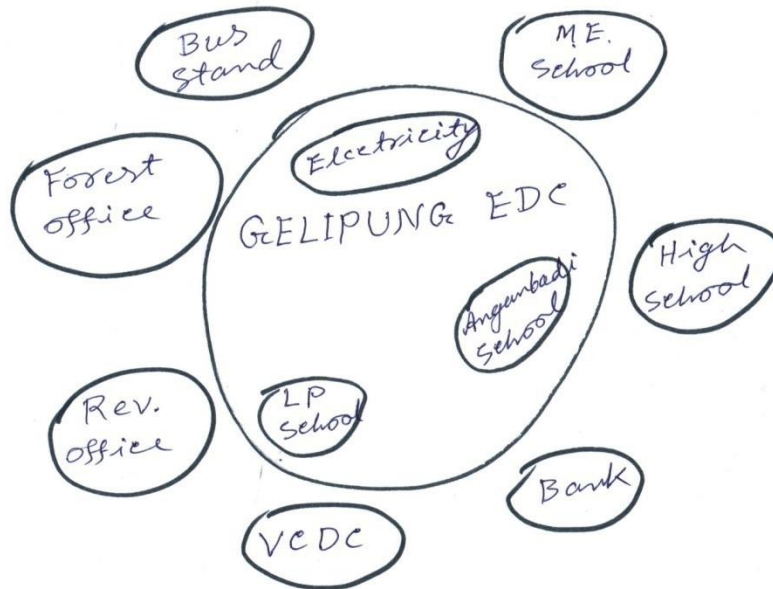 Bus
Stand
M.E.
School
Forest
office
Elcetricity
GELIPUNG EDC
High
School
Anganbadi
School
Rev.
office
LP
School
Bank
VCDC